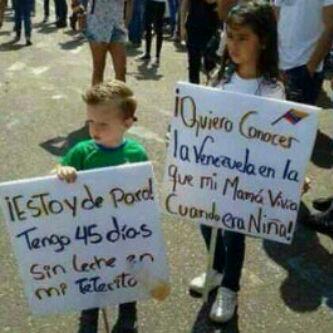 ¡EStoy de Paro!
Tengo 45 días
Sin leche en
mi Teterito
¡Quiero Conocer
la Venezuela en la
que mi Mamá Vivía
Cuando era Niña!